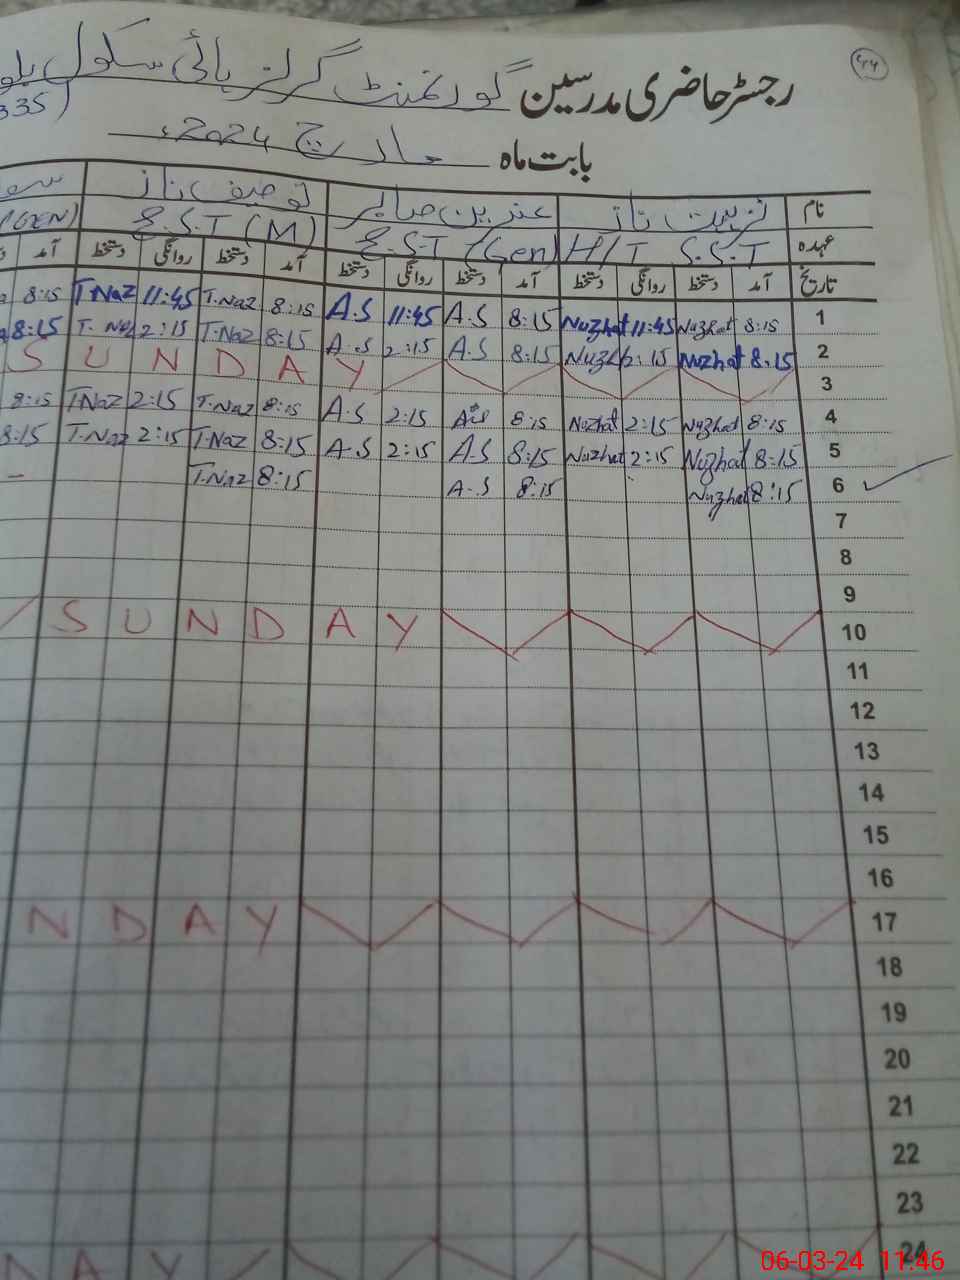 44
رجسٹر حاضری مدرسین گورنمنٹ گرلز ہائی سکول
335)
بابت ماہ مارچ 2024ء
نام نزہت ناز عنبرین صابر توصیف ناز
عہدہ H/T S.S.T E.S.T (Gen) E.S.T (M) (GEN)
تاریخ آمد دستخط روانگی دستخط آمد دستخط روانگی دستخط آمد دستخط روانگی دستخط آمد
1 8:15 Nuzhat 11:45 Nuzhat 8:15 A.S 11:45 A.S 8:15 T.Naz 11:45 T.Naz 8:15
2 8:15 Nuzhat 2:15 Nuzh 8:15 A.S 2:15 A.S 8:15 T.Naz 2:15 T.Naz 8:15
3 S U N D A Y
4 8:15 Nuzhat 2:15 Nuzhat 8:15 A.S 2:15 A.S 8:15 T.Naz 2:15 T.Naz 8:15
5 8:15 Nuzhat 2:15 Nuzhat 8:15 A.S 2:15 A.S 8:15 T.Naz 2:15 T.Naz 8:15
6 8:15 Nuzhat 8:15 A.S 8:15 T.Naz –
7
8
9
10 S U N D A Y
11
12
13
14
15
16
17 N D A Y
18
19
20
21
22
23
24 D A Y
06-03-24 11:46